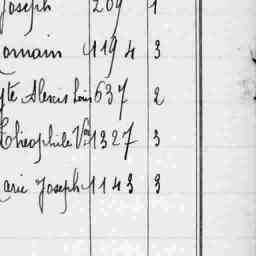 Joseph 209 1
Romain 1194 3
yte Alexis Louis 637 2
Théophile Vor 1327 3
Marie Joseph 1143 3